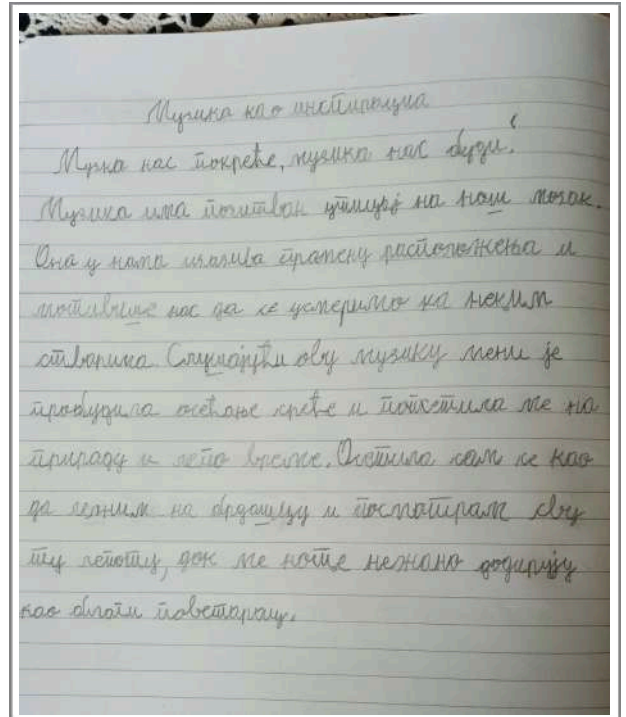 Музика као инспирација
Музика нас покреће, музика нас буди.
Музика има позитиван утицај на наш мозак.
Она у нама изазива промену расположења и
мотивише нас да се усмеримо ка неким
стварима. Слушајући ову музику мени је
пробудила осећање среће и потсетила ме на
природу и лепо време. Осетила сам се као
да лежим на брдашцу и посматрам сву
ту лепоту, док ме ноте нежно додирују
као благи поветарац.